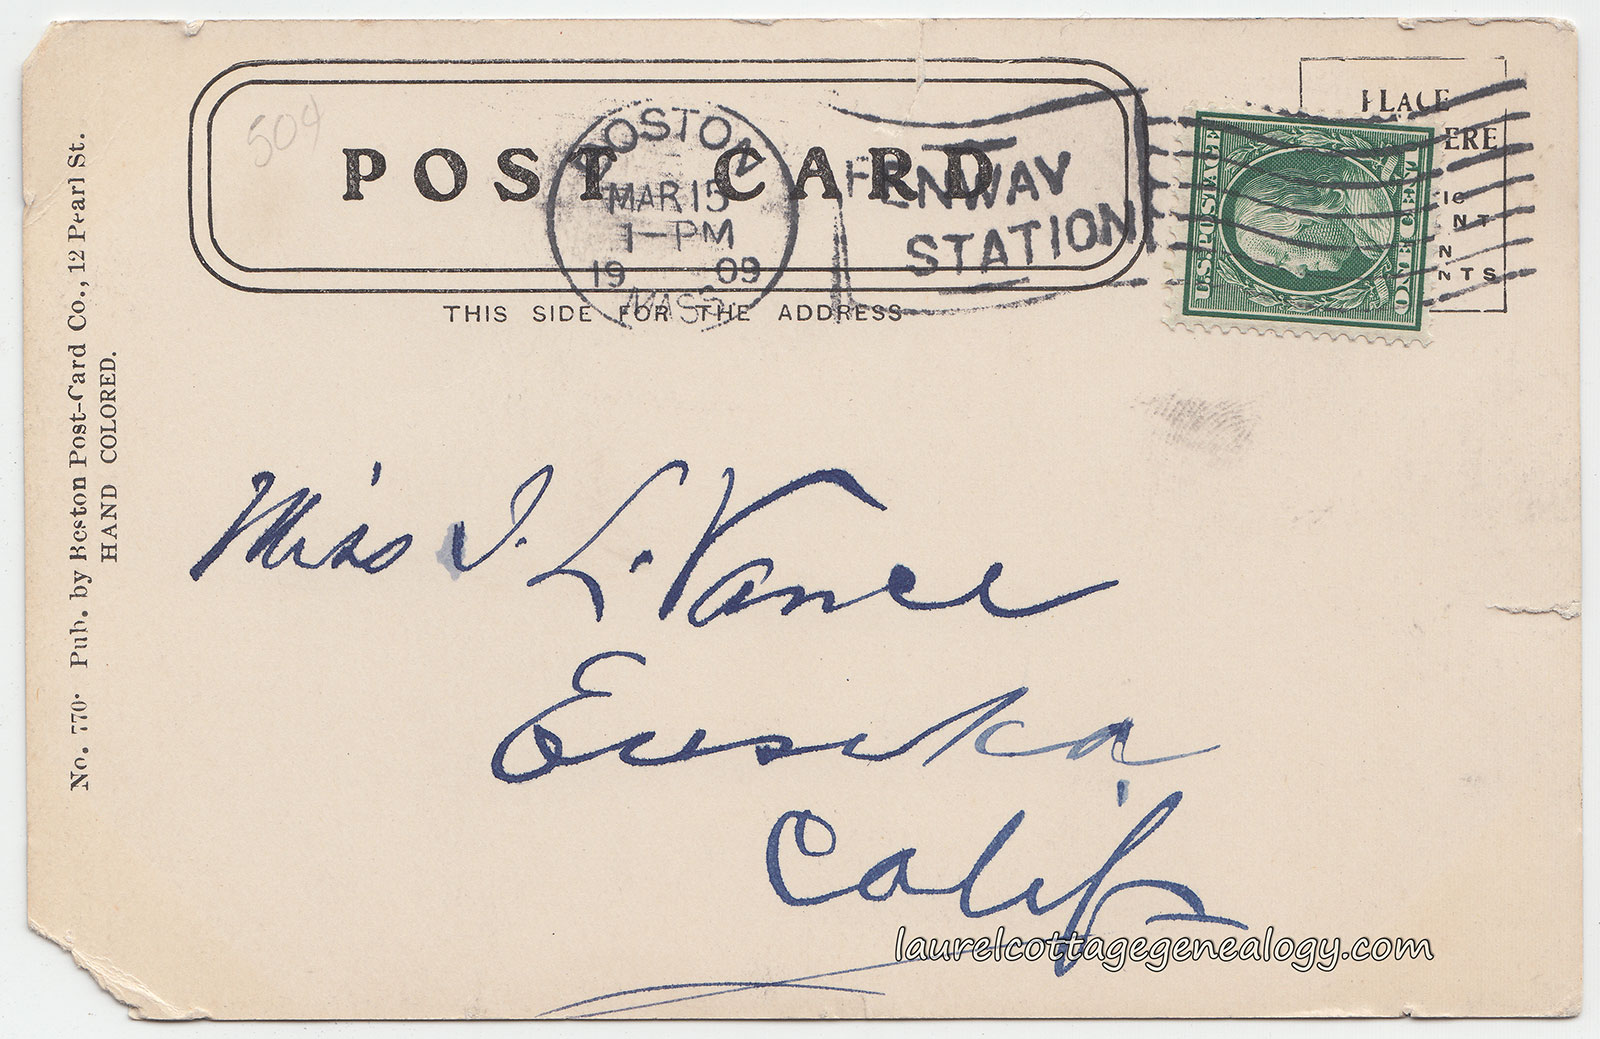 504
POST CARD
BOSTON
MAR 15
1-PM
19 09
MASS.
FENWAY
STATION
PLACE
ERE
U.S. POSTAGE
ONE CENT
THIS SIDE FOR THE ADDRESS
No. 770. Pub. by Boston Post-Card Co., 12 Pearl St.
HAND COLORED.
Miss I. L. Vance
Eureka
Calif
laurelcottagegenealogy.com